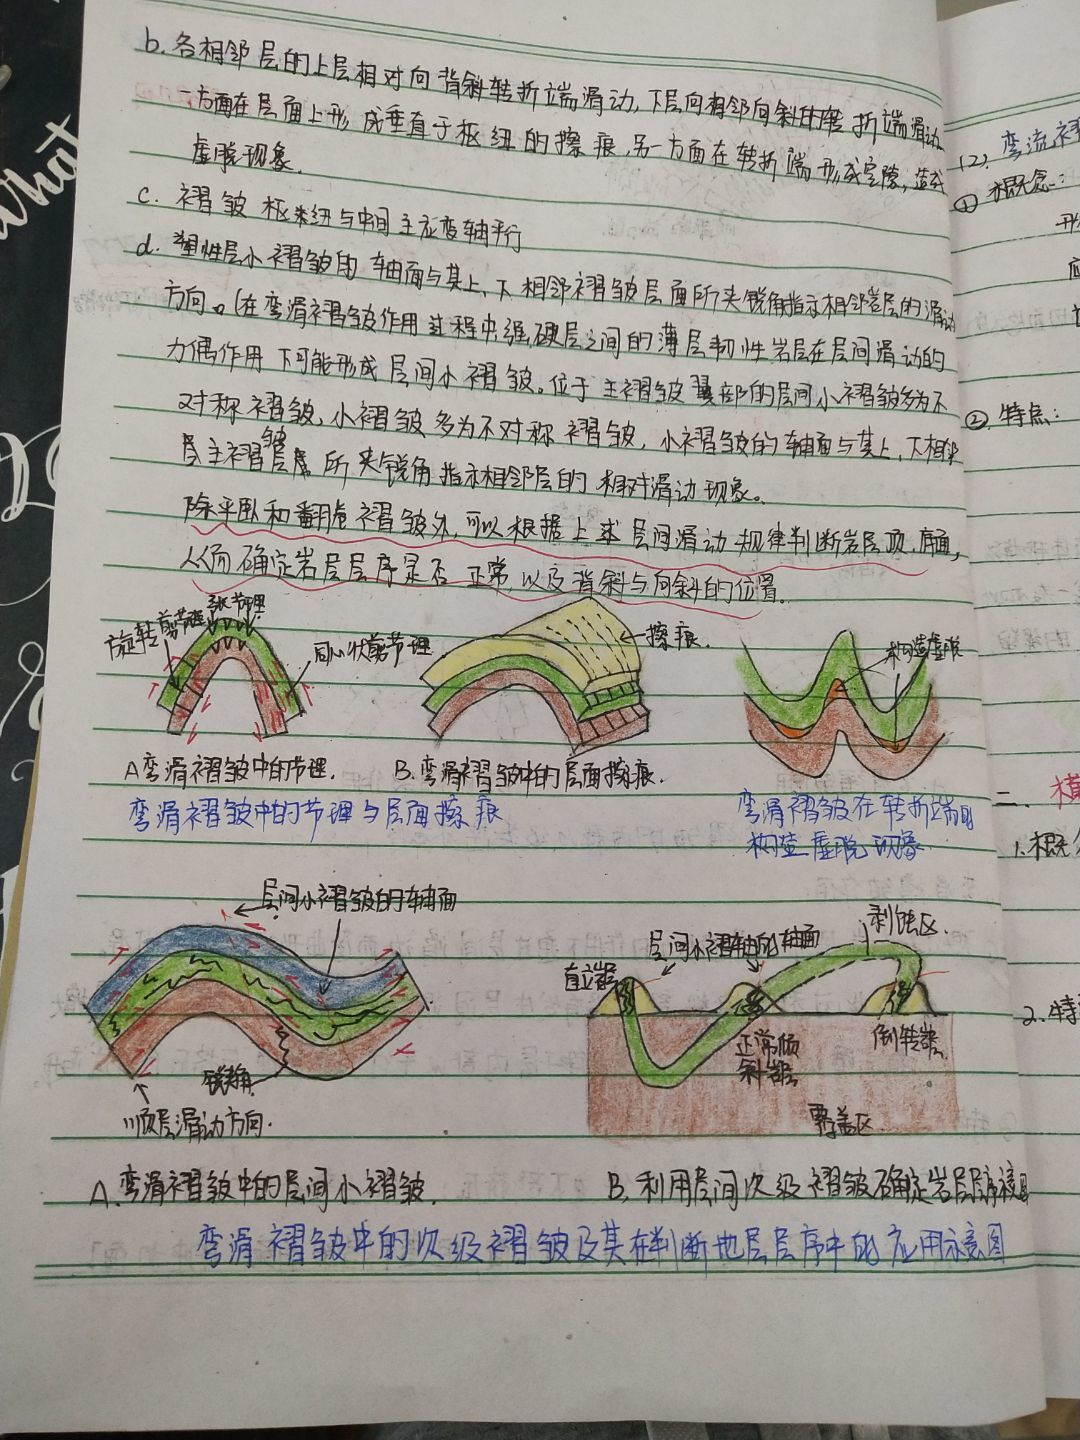 b. 各相邻层的上层相对向背斜转折端滑动,下层向相邻向斜的转折端滑动
一方面在层面上形成垂直于枢纽的擦痕,另一方面在转折端形成空隙,造成
虚脱现象.
c. 褶皱枢纽与中间主应变轴平行
d. 塑性层小褶皱的轴面与其上、下相邻褶皱层面所夹锐角指示相邻岩层的滑动
方向。(在弯滑褶皱作用过程中,强硬层之间的薄层韧性岩层在层间滑动的
力偶作用下可能形成层间小褶皱。位于主褶皱翼部的层间小褶皱多为不
对称褶皱,小褶皱多为不对称褶皱,小褶皱的轴面与其上、下相邻
层主褶皱层所夹锐角指示相邻层的相对滑动现象。
除平卧和翻卷褶皱外,可以根据上述层间滑动规律判断岩层顶、底面,
从而确定岩层层序是否正常,以及背斜与向斜的位置.
旋转剪节理
张节理
同心状剪节理
擦痕.
构造虚脱
A弯滑褶皱中的节理.
B.弯滑褶皱中的层面擦痕.
弯滑褶皱中的节理与层面擦痕
弯滑褶皱在转折端的
构造虚脱现象
层间小褶皱的轴面
锐角
顺层滑动方向.
层间小褶皱的轴面
剥蚀区.
直立岩层
正常倾
斜岩层
倒转岩层.
覆盖区.
A.弯滑褶皱中的层间小褶皱.
B.利用层间次级褶皱确定岩层层序
弯滑褶皱中的次级褶皱及其在判断地层层序中的应用示意图
(2). 弯流褶
① 概念:
形
应
② 特点:
二. 横
1.概念
2.特